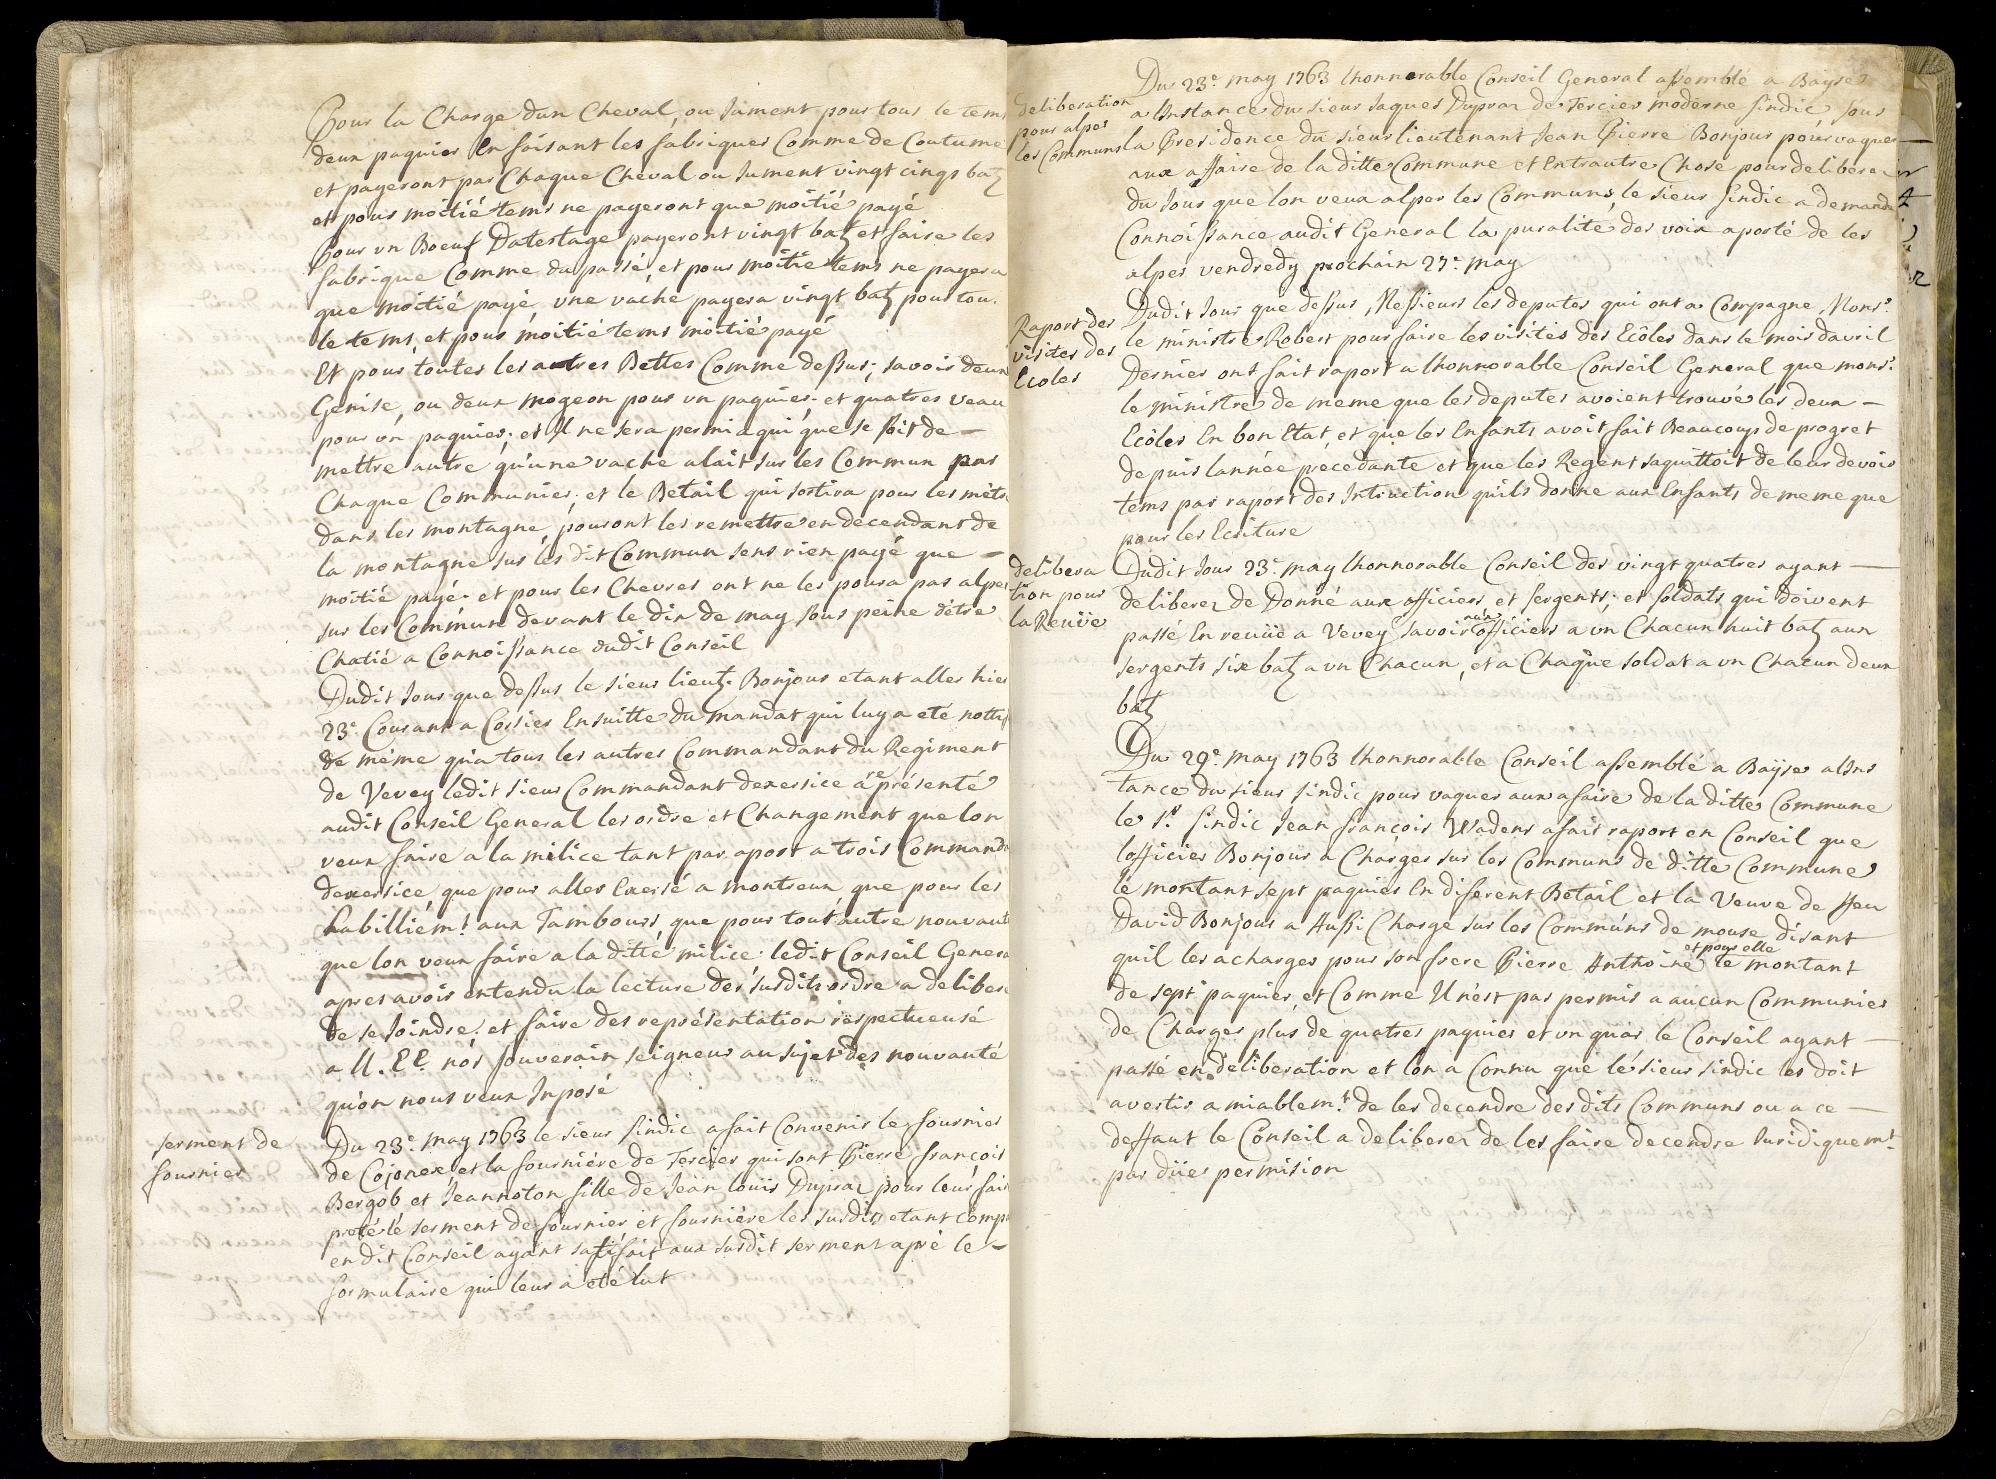 Pour la Charge dun Cheval, ou Jument pour tous le tems
deux paquier En faisant les fabriques Comme de Coutume
et payeront par Chaque Cheval ou Jument vingt cinqs batz
et pour moitié tems ne payeront que moitié payé
Pour vn Boeuf Datestage payeront vingt batz et faire les
fabrique Comme du passé, et pour moitié tems ne payera
que moitié payé, vne vache payera vingt batz pour tou.
le tems, et pour moitié tems moitié payé
Et pour toutes les autres Bettes Comme dessus; savoir deux
Genise, ou deux mogeon pour vn paquier. et quatres veau
pour vn paquier; et Il ne sera permi a qui que se soit de —
mettre autre qu'une vache a lait sur les Commun par
Chaque Communier; et le Betail qui sortira pour les metre
dans les montagne, pouront les remettre en decendant de
la montagne sur les dit Commun sens rien payé que —
moitié payé. et pour les Chevres ont ne les poura pas alper
sur les Commun devant le dix de may sous peine d'être
Chatié a Connoissance dudit Conseil
Dudit Jour que dessus le sieur lieut. Bonjour etant aller hier
23.e Courant a Corsier Ensuitte du mandat qui luy a eté nottif
de même qu'a tous les autres Commandant du Regiment
de Vevey ledit sieur Commandant dexersice a présenté
audit Conseil General les ordre et Changement que lon
veux faire a la milice tant par aport a trois Command
dexersice, que pour aller Exersé a montreux que pour les
habilliem.t aux Tambours, que pour tout autre nouvaute
que lon veux faire a la ditte milice. ledit Conseil General
apres avoir entendu la lecture des susdits ordre a delibere
de se Joindre. et faire des représentation respectueusé
a LL. EE. nos souverain seigneur au sujet des nouvauté
qu'on nous veux Inposé
serment de
fournier
Du 23.e may 1763 le sieur sindic a fait Convenir le fournier
de Cojonex et la fourniére de Tercier qui sont Pierre françois
Bergob et Jeannoton fille de Jean louis Dupraz pour leur fair
preté lé serment de fournier et fourniére les susdits etant comp
en dit Conseil ayant satisfait aux susdit serment apré le —
formulaire qui leur a eté lut
deliberation
pour alper
les Communs
Du 23.e may 1763 lhonnorable Conseil General assemblé a Bayse
a Instance du sieur Jaques Dupraz de Tercier moderne sindic, sous
la Presidence du sieur lieutenant Jean Pierre Bonjour pour vaquer
aux affaire de la ditte Commune et Entrautre Chose pour deliberer
du Jour que lon veux alper les Communs, le sieur sindic a demandé
Connoissance audit General la puralité des voix a porté de les
alper vendredy prochain 27.e may
Raport des
visites des
Ecoles
Dudit Jour que dessus, Messieurs les deputes qui ont a Compagne, Mons.r
le ministre Robert pour faire les visites des Ecôles dans le mois davril
Dernier ont fait raport a lhonnorable Conseil General que mons.r
le ministre de meme que les deputes avoient trouvé les deux —
Ecôles En bon Etat, et que les Enfants avoit fait Beaucoup de progret
depuis lannée precedante et que les Regent saquittoit de leur devoir
tems par raport des Intruction qu'ils donne aux Enfants de meme que
pour les Ecriture
delibera
tion pour
la Reuüe
Dudit Jour 23.e may lhonnorable Conseil des vingt quatres ayant —
deliberez de Donné aux officiers, et sergents; et soldats qui doivent
passé En reuüe a Vevey savoir aux officiers a vn Chacun huit batz aux
sergents six batz a vn Chacun, et a Chaque soldat a vn Chacun deux
batz
Du 29.e may 1763 lhonnorable Conseil assemblé a Bayse a Ins
tance du sieur sindic pour vaquer aux afaire de la ditte Commune
le s.r sindic Jean françois Wadens a fait raport en Conseil que
lofficier Bonjour a Charger sur les Communs de ditte Commune
le montant sept paquier En diferent Betail et la Veuve de ffeu
David Bonjour a Aussi Charge sur les Communs de mouse disant
quil les a charges pour son frere Pierre Anthoine et pour elle le montant
de sept paquier, et Comme Il n'est pas permis a aucun Communier
de Charger plus de quatres paquier et vn quar le Conseil ayant —
passé en deliberation et lon a Connu que le sieur sindic les doit
avertir amiablem.t de les decendre des dits Communs ou a ce —
deffaut le Conseil a deliberez de les faire decendre Juridiquem.t
par düe permision